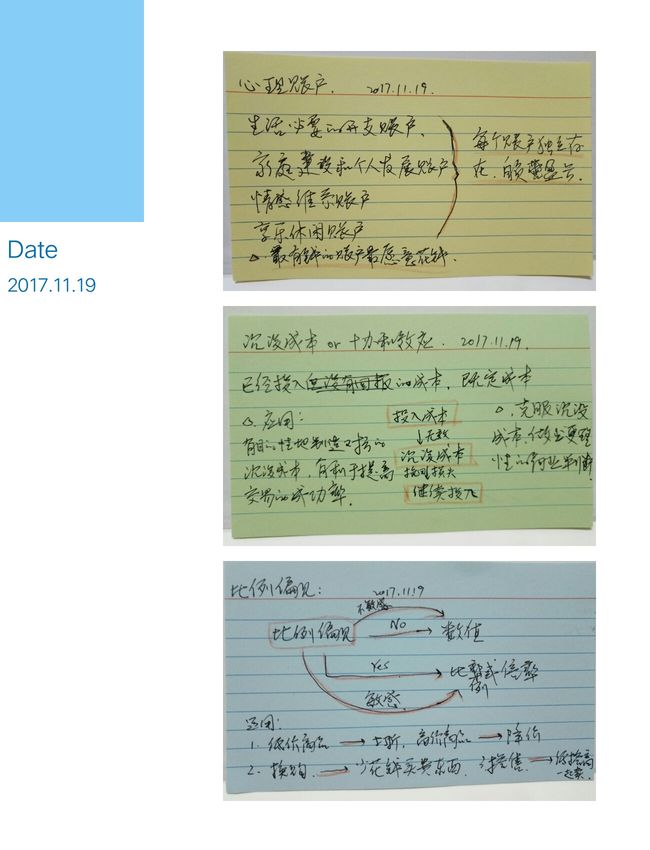 Date
2017.11.19
心理账户. 2017.11.19.
生活必要的开支账户.
家庭建设和个人发展账户
情感维系账户
享乐休闲账户
每个账户独立存
在.
△ 最有钱的账户最愿意花钱.
沉没成本 or 协和效应. 2017.11.19.
已经投入但没有回报的成本. 既定成本
△. 应用:
有目的性地制造对方的
沉没成本, 有利于提高
交易的成功率.
投入成本
↓无效
沉没成本
挽回损失
继续投入
△. 克服沉没
成本, 做出更理
性的
比例偏见: 2017.11.19
不敏感
比例偏见 No 数值
Yes 比例或倍率
敏感
运用:
1. 低价商品 → 打折, 高价商品 → 降价
2. 换购. → 少花钱买贵东西.
一起卖.